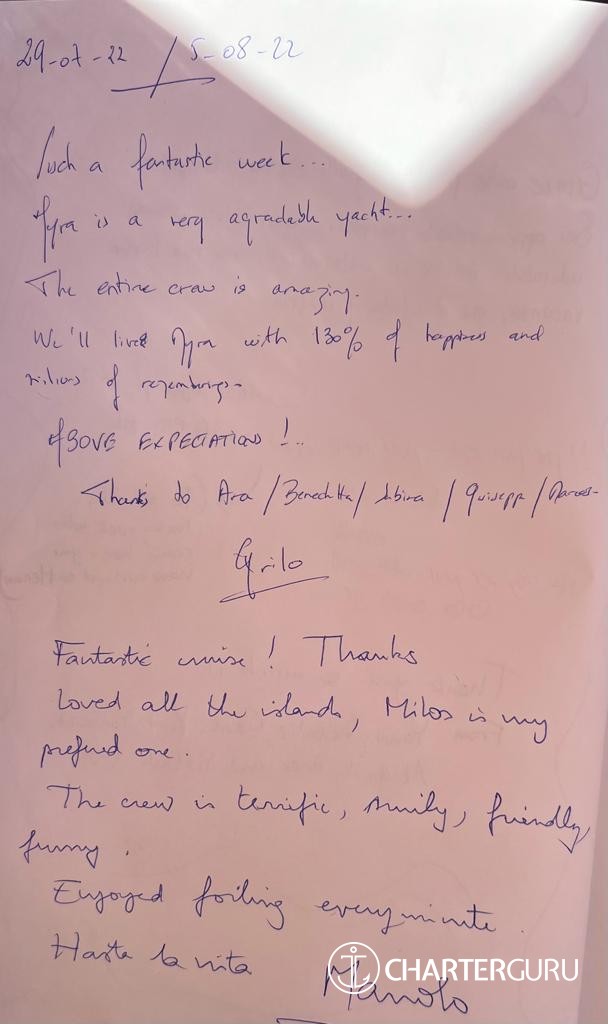 29-07-22 / 5-08-22
Such a fantastic week...
Myra is a very agradable yacht...
The entire crew is amazing.
We'll lived Myra with 130% of happiness and
milions of remembrings-
ABOVE EXPECTATIONS !..
Thanks do Ara / Benedetta / / /
Fantastic cruise ! Thanks
Loved all the islands, Milos is my
prefered one.
The crew is terrific, smily, friendly,
funny.
Enjoyed foiling every minute.
Hasta la vita
Manolo
CHARTERGURU